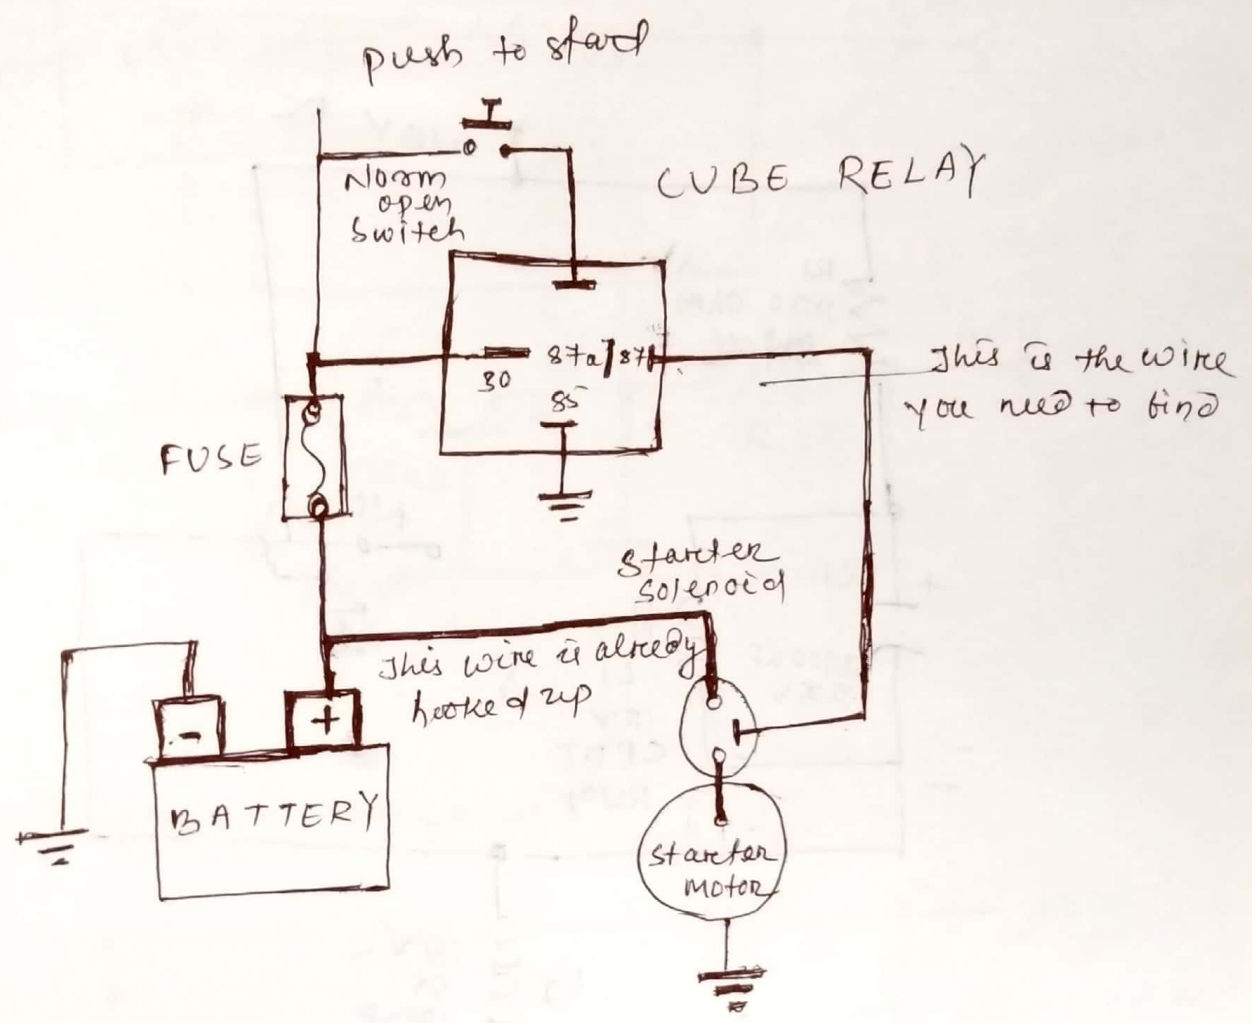 push to start
Norm
open
Switch
CUBE RELAY
30
87a
87
85
This is the wire
you need to find
FUSE
Starter
Solenoid
This wire is already
hooked up
-
+
BATTERY
Starter
motor